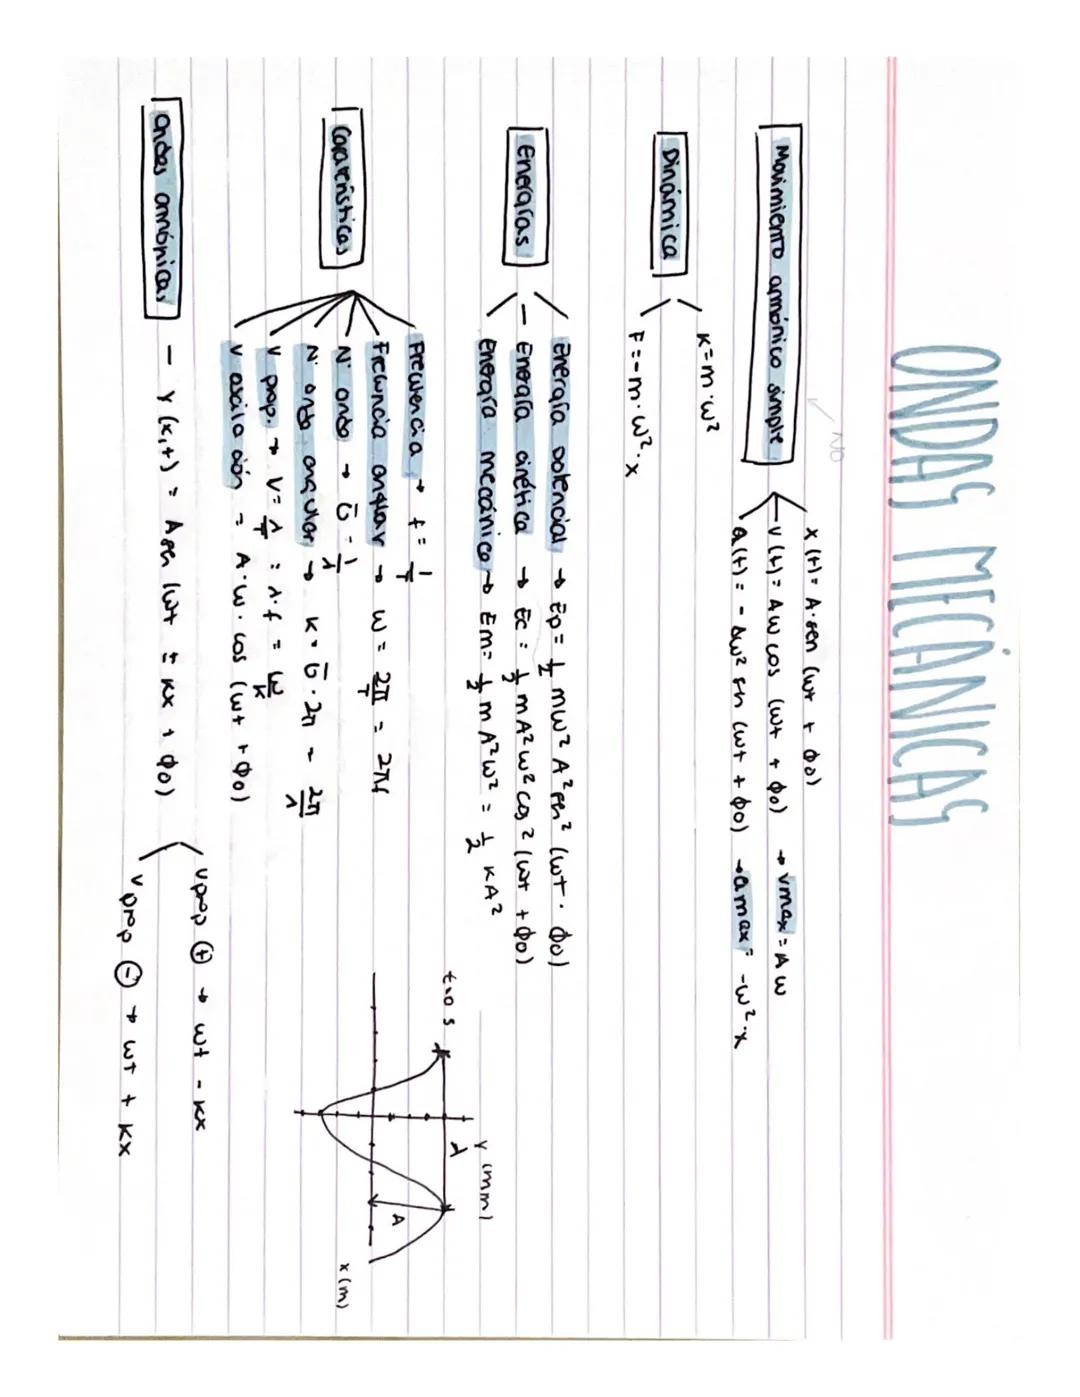 ONDAS MECÁNICAS
NO
Movimiento armónico simple
x(t) = A·sen (ωt + ϕ0)
v(t) = Aω cos (ωt + ϕ0) → vmax = Aω
a(t) = - Aω² sen (ωt + ϕ0) → amax = -ω²·x
Dinámica
K = m·ω²
F = -m·ω²·x
Energías
Energía potencial → Ep = 1/2 mω² A² sen² (ωt · ϕ0)
Energía cinética → Ec = 1/2 m A² ω² cos² (ωt + ϕ0)
Energía mecánica → Em = 1/2 m A² ω² = 1/2 KA²
Características
Frecuencia → f = 1/T
Frecuncia angular → ω = 2π/T = 2πf
Nº onda → ν̅ = 1/λ
Nº onda angular → K = ν̅ · 2π = 2π/λ
V prop. → V = λ/T = λ·f = ω/K
V oscilación = A·ω·cos (ωt + ϕ0)
t=0 s
y (mm)
λ
A
x (m)
Ondas armónicas - y (x,t) = A sen (ωt ± Kx + ϕ0)
Vprop (+) → ωt - Kx
Vprop (-) → ωt + Kx